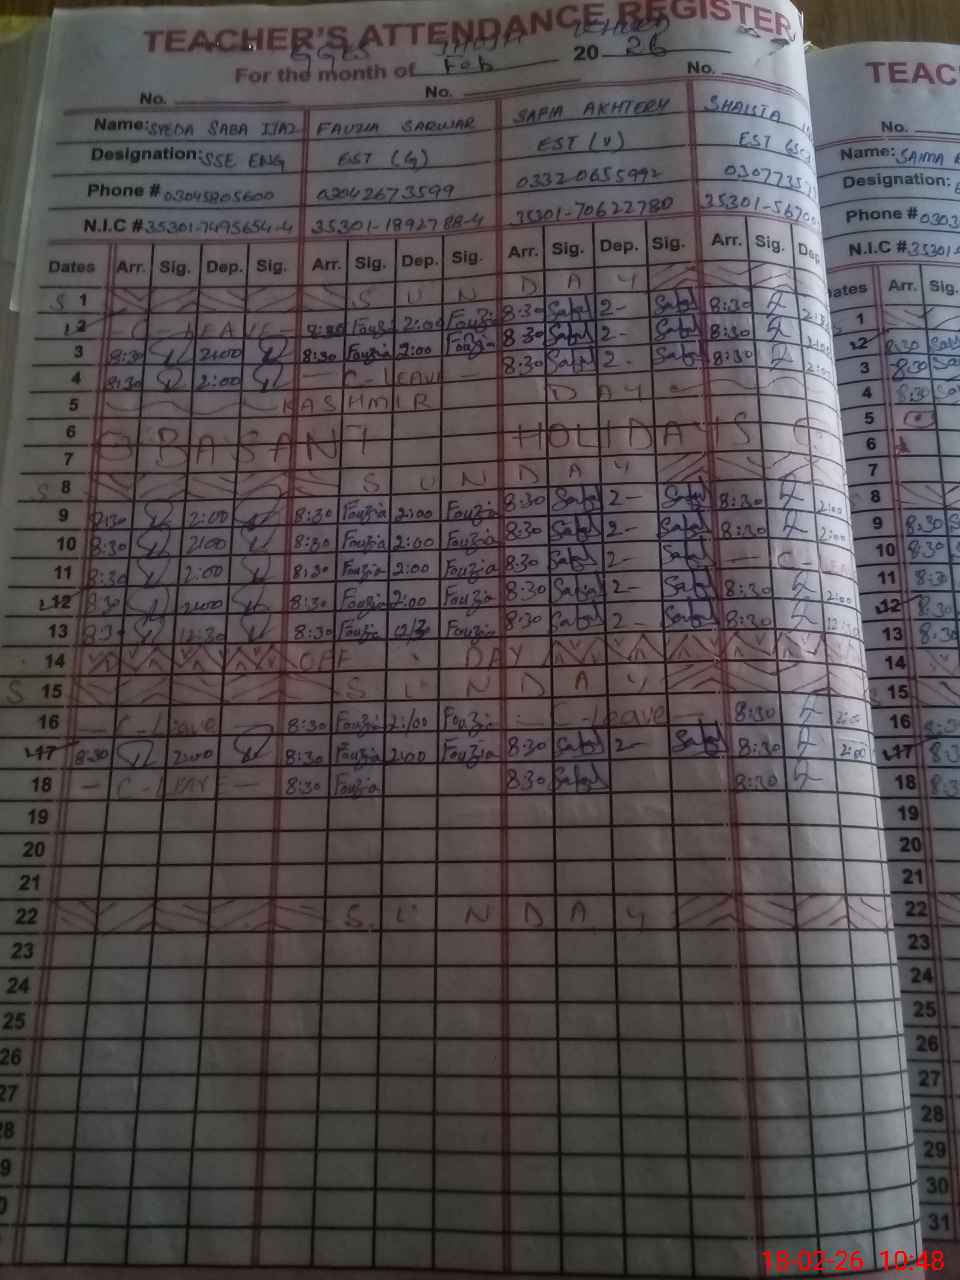 TEACHER'S ATTENDANCE REGISTER
GGES
For the month of Feb 20 26
No. No. No.
Name: SYEDA SABA IJAZ FAUZIA SARWAR SAFIA AKHTERY SHAISTA
Designation: SSE ENG EST (G) EST (V) EST
Phone # 03045805600 03042673599 03320655992
N.I.C # 35301-7495654-4 35301-1892788-4 35301-70622780
Dates Arr. Sig. Dep. Sig. Arr. Sig. Dep. Sig. Arr. Sig. Dep. Sig. Arr. Sig. Dep.
S 1 SUNDAY
2 C-LEAVE 8:30 Fouzia 2:00 Fouzia 8:30 Safia 2- Safia 8:30
3 8:30 2:00 8:30 Fouzia 2:00 Fouzia 8:30 Safia 2- Safia 8:30
4 8:30 2:00 C-LEAVE 8:30 Safia 2- Safia 8:30 2:00
5 KASHMIR DAY
6 BASANT HOLIDAYS
7
S 8 SUNDAY
9 8:30 2:00 8:30 Fouzia 2:00 Fouzia 8:30 Safia 2- Safia 8:30 2:00
10 8:30 2:00 8:30 Fouzia 2:00 Fouzia 8:30 Safia 2- Safia 8:30 2:00
11 8:30 2:00 8:30 Fouzia 2:00 Fouzia 8:30 Safia 2- Safia - C-
12 8:30 2:00 8:30 Fouzia 2:00 Fouzia 8:30 Safia 2- Safia 8:30 2:00
13 8:30 12:30 8:30 Fouzia 12:30 Fouzia 8:30 Safia 2- Safia 8:30
14 OFF DAY
S 15 SUNDAY
16 - C-Leave - 8:30 Fouzia 2:00 Fouzia - C-Leave - 8:30 2:00
17 8:30 2:00 8:30 Fouzia 2:00 Fouzia 8:30 Safia 2- Safia 8:30 2:00
18 - C-LEAVE - 8:30 Fouzia 8:30 Safia 8:30
19
20
21
22 SUNDAY
23
24
25
26
27
28
29
30
TEAC
No.
Name: SAIMA
Designation:
Phone # 0303
N.I.C # 35301
Dates Arr. Sig.
1
2 8:30
3 8:30
4 8:30
5
6
7
8
9 8:30
10 8:30
11 8:30
12 8:30
13 8:30
14
15
16 8:30
17 8:3
18 8:3
19
20
21
22
23
24
25
26
27
28
29
30
31
18-02-26 10:48